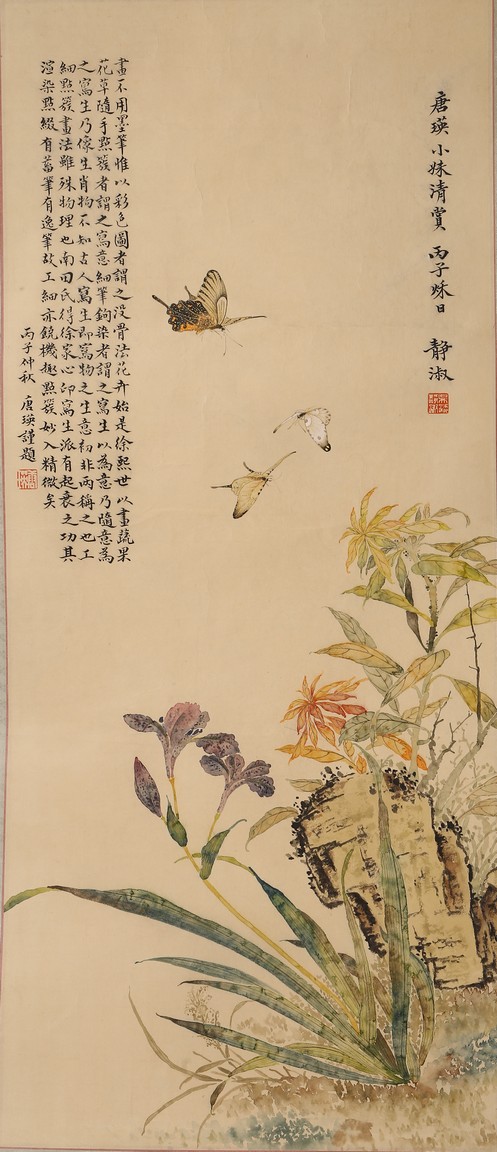 唐瑛小妹清賞 丙子秌日 靜淑
畫不用墨筆惟以彩色圖者謂之没骨法花卉始是徐熙世以畫蔬果
花草隨手點簇者謂之寫意細筆鉤染者謂之寫生以為意乃隨意為
之寫生乃像生肖物不知古人寫生即寫物之生意初非兩稱之也工
細點簇畫法雖殊物理也南田氏得徐家心印寫生派有起衰之功其
渲染點綴有蓄筆有逸筆故工細亦饒機趣點簇妙入精微矣
丙子仲秋 唐瑛謹題